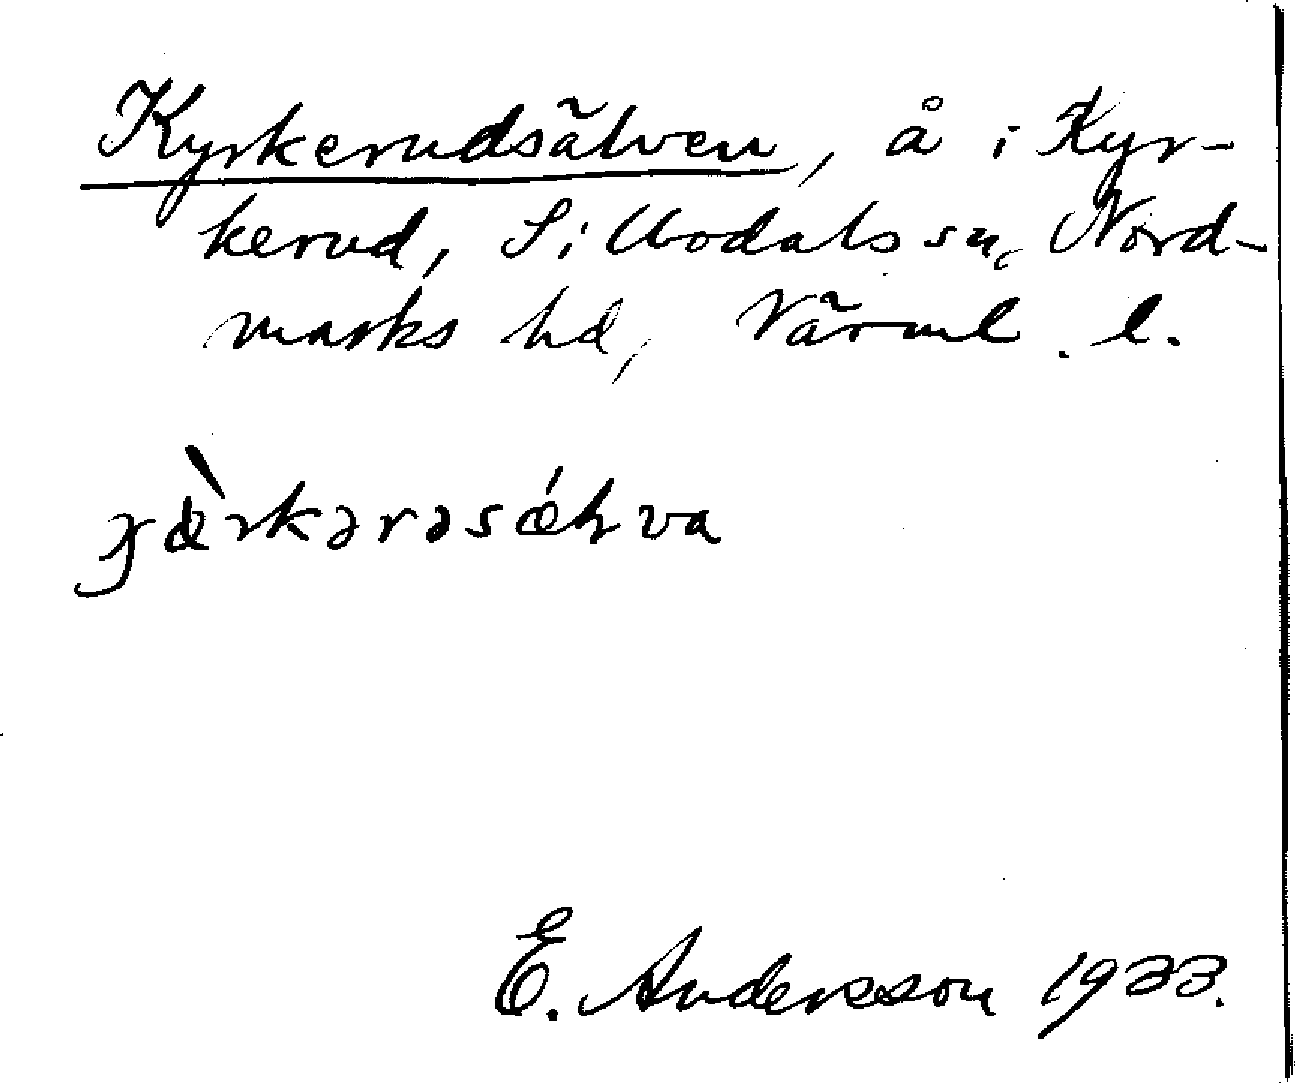 Kyrkerudsälven, å i Kyr-
kerud, Sillbodals sn, Nord-
marks hd, Värml. l.
E. Andersson 1933.